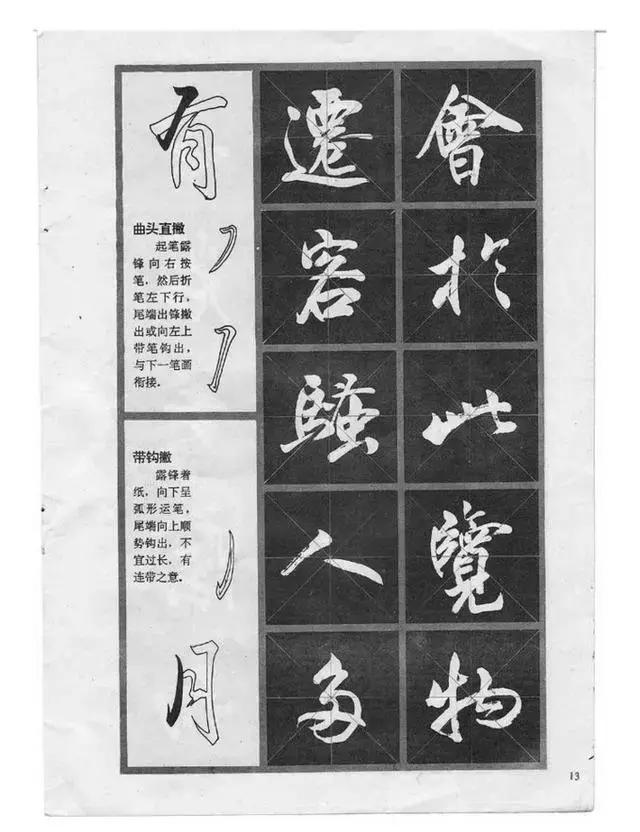 有
曲头直撇
起笔露
锋向右按
笔，然后折
笔左下行，
尾端出锋撇
出或向左上
带笔钩出，
与下一笔画
衔接。
带钩撇
露锋着
纸，向下呈
弧形运笔，
尾端向上顺
势钩出，不
宜过长，有
连带之意。
月
遷客騷人多
會於此覽物
13